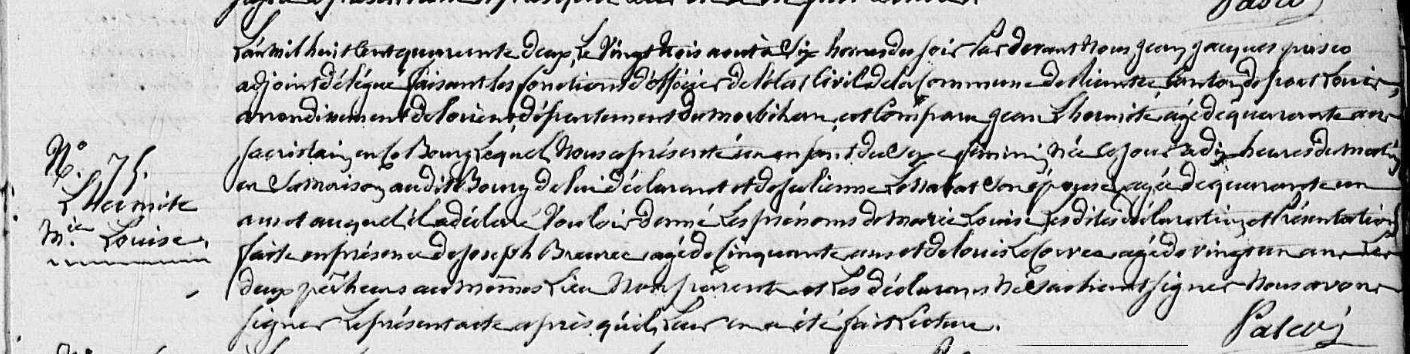 L'an mil huit cent quarante deux, Le Vingt trois aout à Six heures du soir Par devant Nous Jean Jacques pasco
adjoint délégué faisant les fonctions d'officier de l'état Civil de la Commune de Riantec, Canton de port Louis,
arrondissement de lorient, département du morbihan, est Comparu Jean Lhermite agé de quarante ans
Sacristain, en Ce Bourg Lequel Nous a présenté un enfant du Sexe féminin, Née Ce jour à dix heures du matin
en Sa maison, audit Bourg de lui déclarant et de julienne Son épouse, agée de quarante un
ans et auquel il a déclaré Vouloir donné Les prénoms de Marie Louise, lesdites déclaration, et Présentation
faite en présence de joseph agé de Cinquante ans et de louis agé de vingt un ans Les
deux au même Lieu Non parents et Les déclarans Ne Sachant Signer Nous avons
Signer Le présent acte après qu'il Leur en a été fait Lecture.
Pasco
N.° 75.
Lhermite
M.ie Louise.